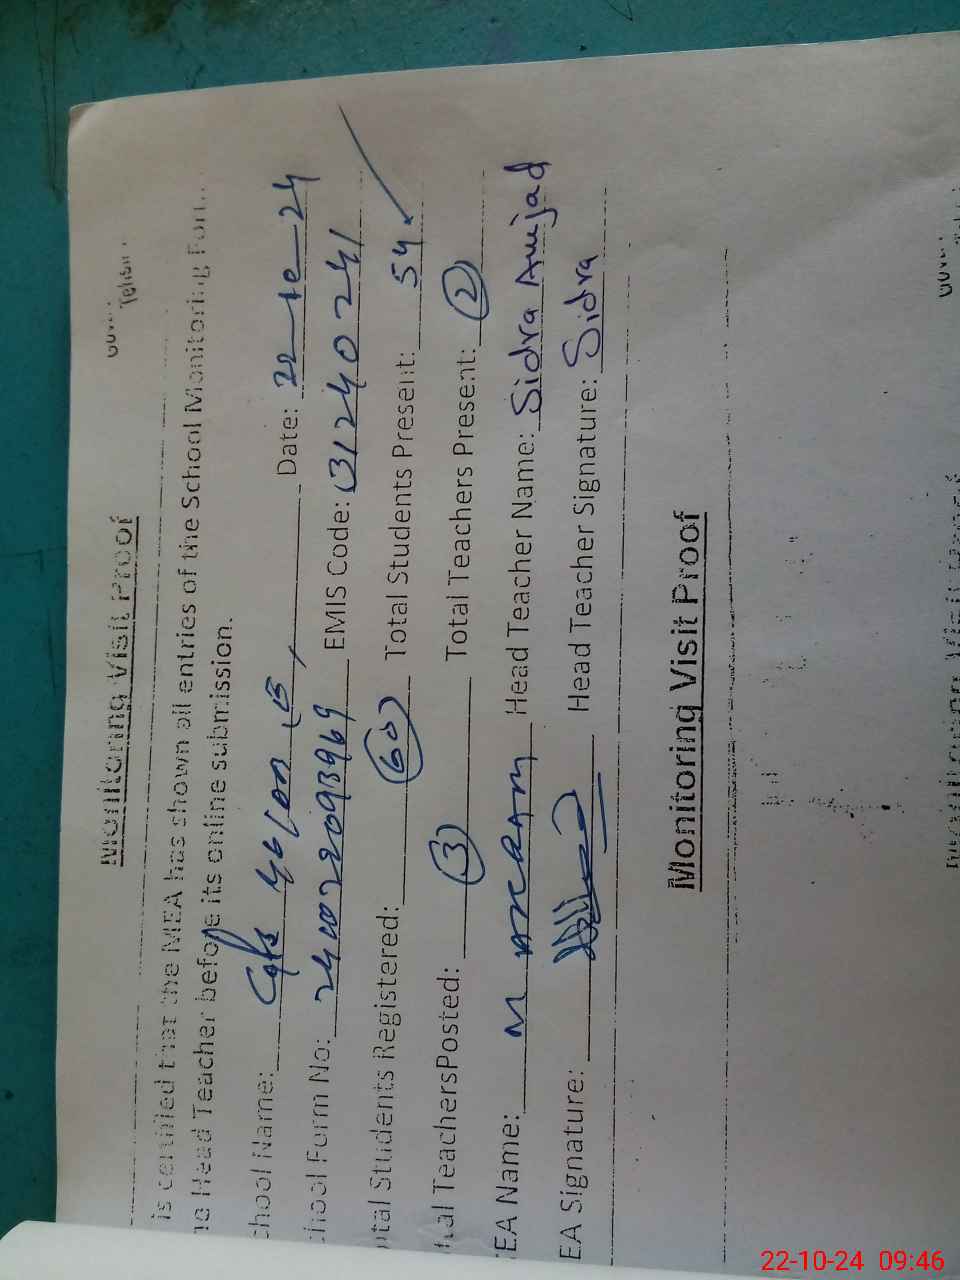 Monitoring Visit Proof
is certified that the MEA has shown all entries of the School Monitoring For
Head Teacher before its online submission.
chool Name: Date: 22-10-24
chool Form No: EMIS Code: 31240241
otal Students Registered: 60 Total Students Present: 54
tal TeachersPosted: 3 Total Teachers Present: 2
EA Name: M AKRAM Head Teacher Name: Sidra Amjad
EA Signature: Head Teacher Signature: Sidra
Monitoring Visit Proof
22-10-24 09:46